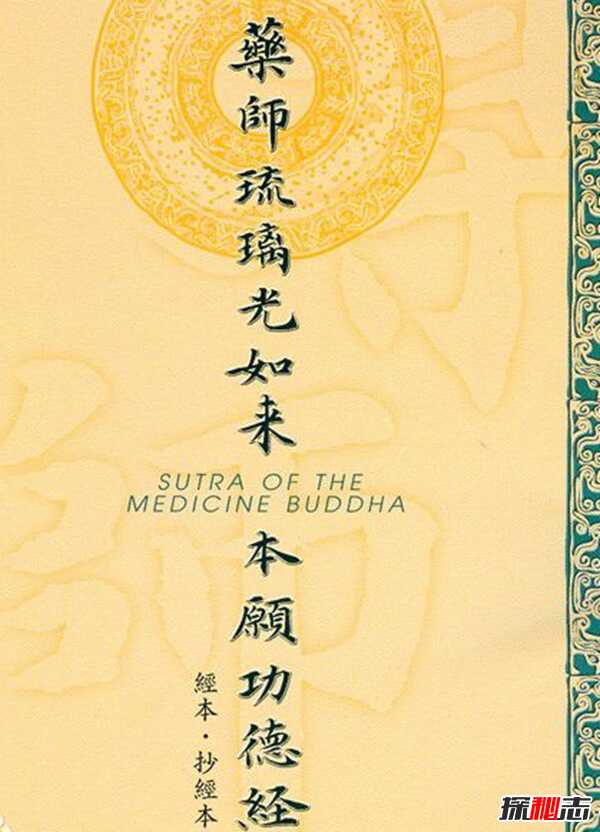 藥師琉璃光如来
SUTRA OF THE
MEDICINE BUDDHA
本願功德經
經本·抄經本
師
探秘志